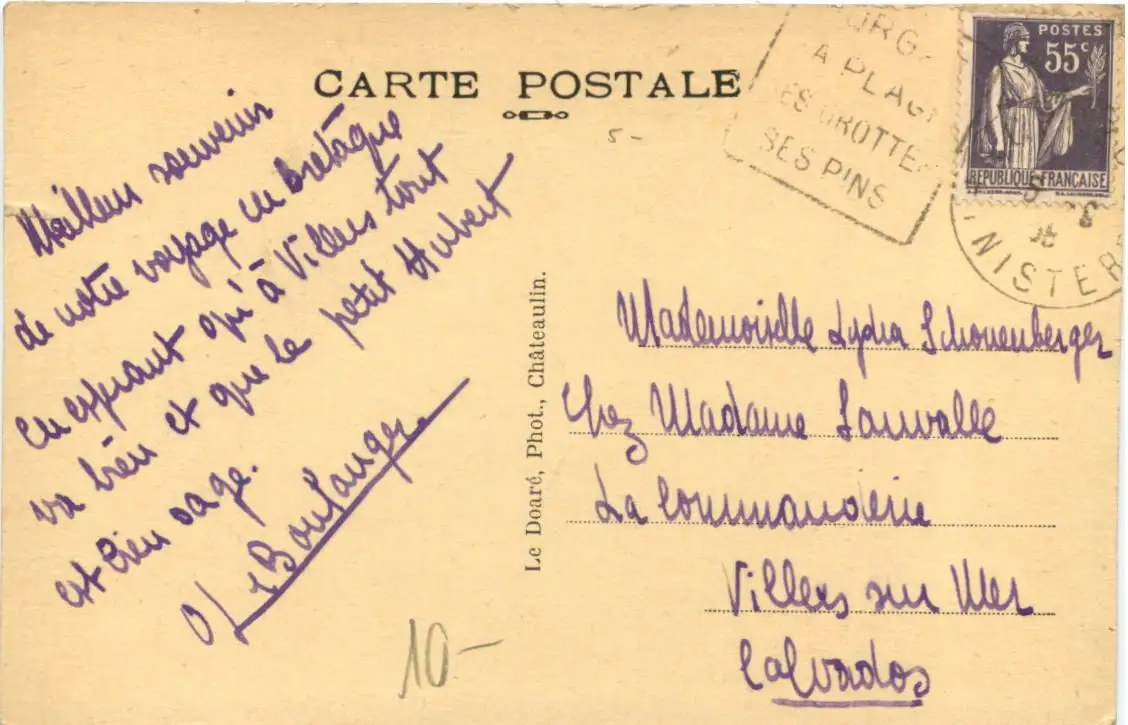 CARTE POSTALE
5-
Meilleur souvenir
de notre voyage en Bretagne
en espérant qu'à Villers tout
va bien et que le petit Hubert
est bien sage.
Boulanger
10-
Le Doaré, Phot., Châteaulin.
A PLAG
ES GROTTE
SES PINS
POSTES
55c
REPUBLIQUE FRANÇAISE
NISTER
Mademoiselle Lydia Schonenberger
Chez Madame Sauvalle
La Commanderie
Villers sur Mer
Calvados